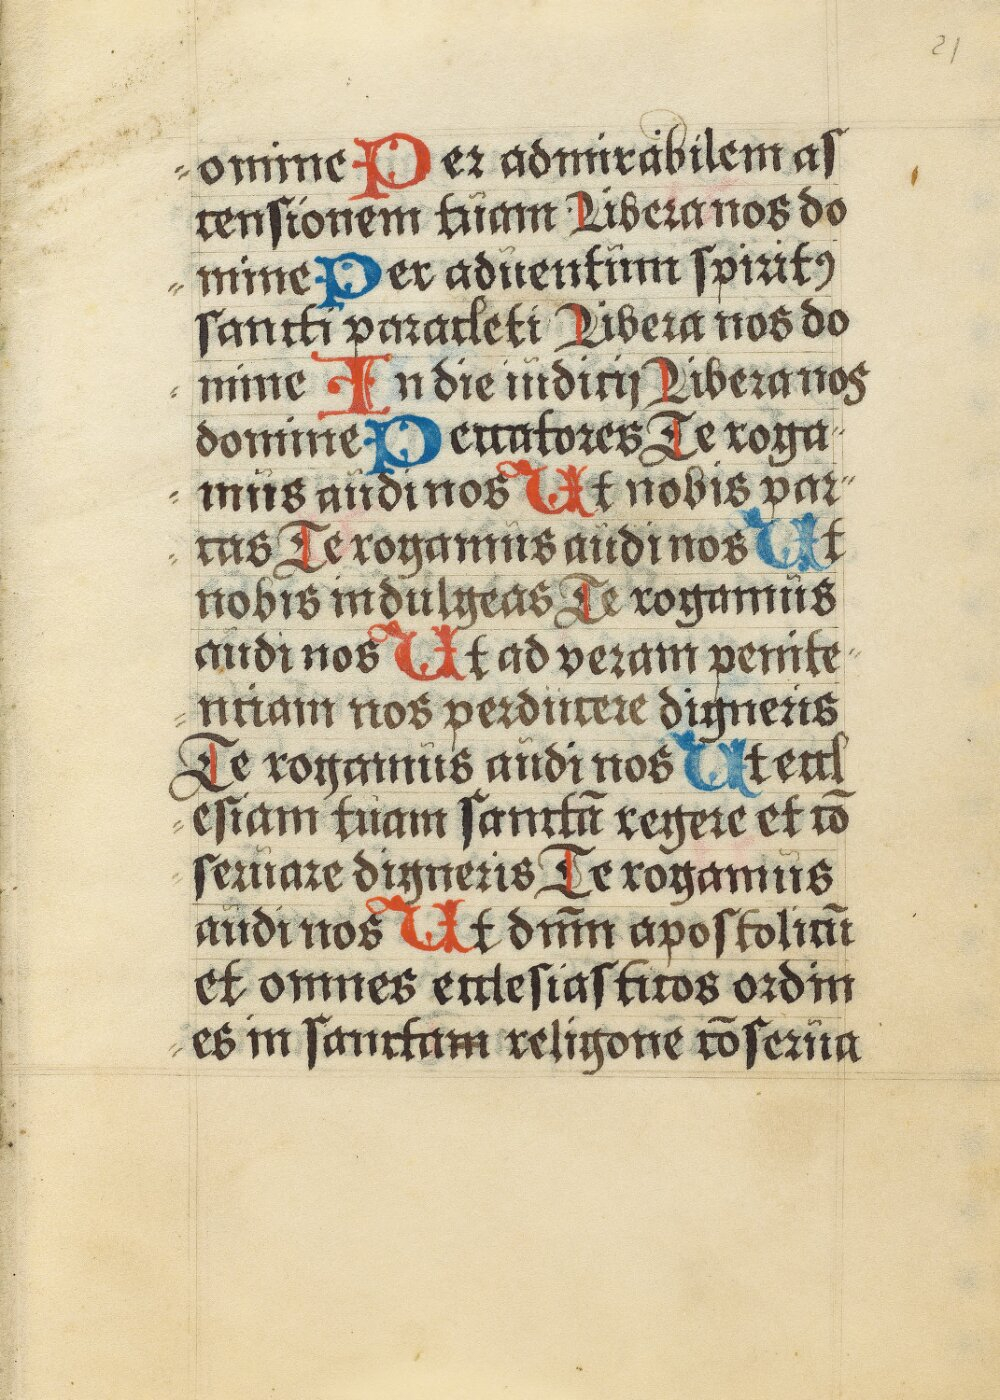 21
omine Per admirabilem as
censionem tuam Libera nos do
mine Per aduentum spiritꝯ
sancti paracleti Libera nos do
mine In die iudicij Libera nos
domine Peccatores Te roga-
mus audi nos Ut nobis par-
cas Te rogamus audi nos Ut
nobis indulgeas Te rogamus
audi nos Ut ad veram penite-
ntiam nos perducere digneris
Te rogamus audi nos Ut eccl
esiam tuam sanctā regere et cō
seruare digneris Te rogamus
audi nos Ut dn̄m apostolicū
et omnes ecclesiasticos ordin
es in sanctam religone cōserua